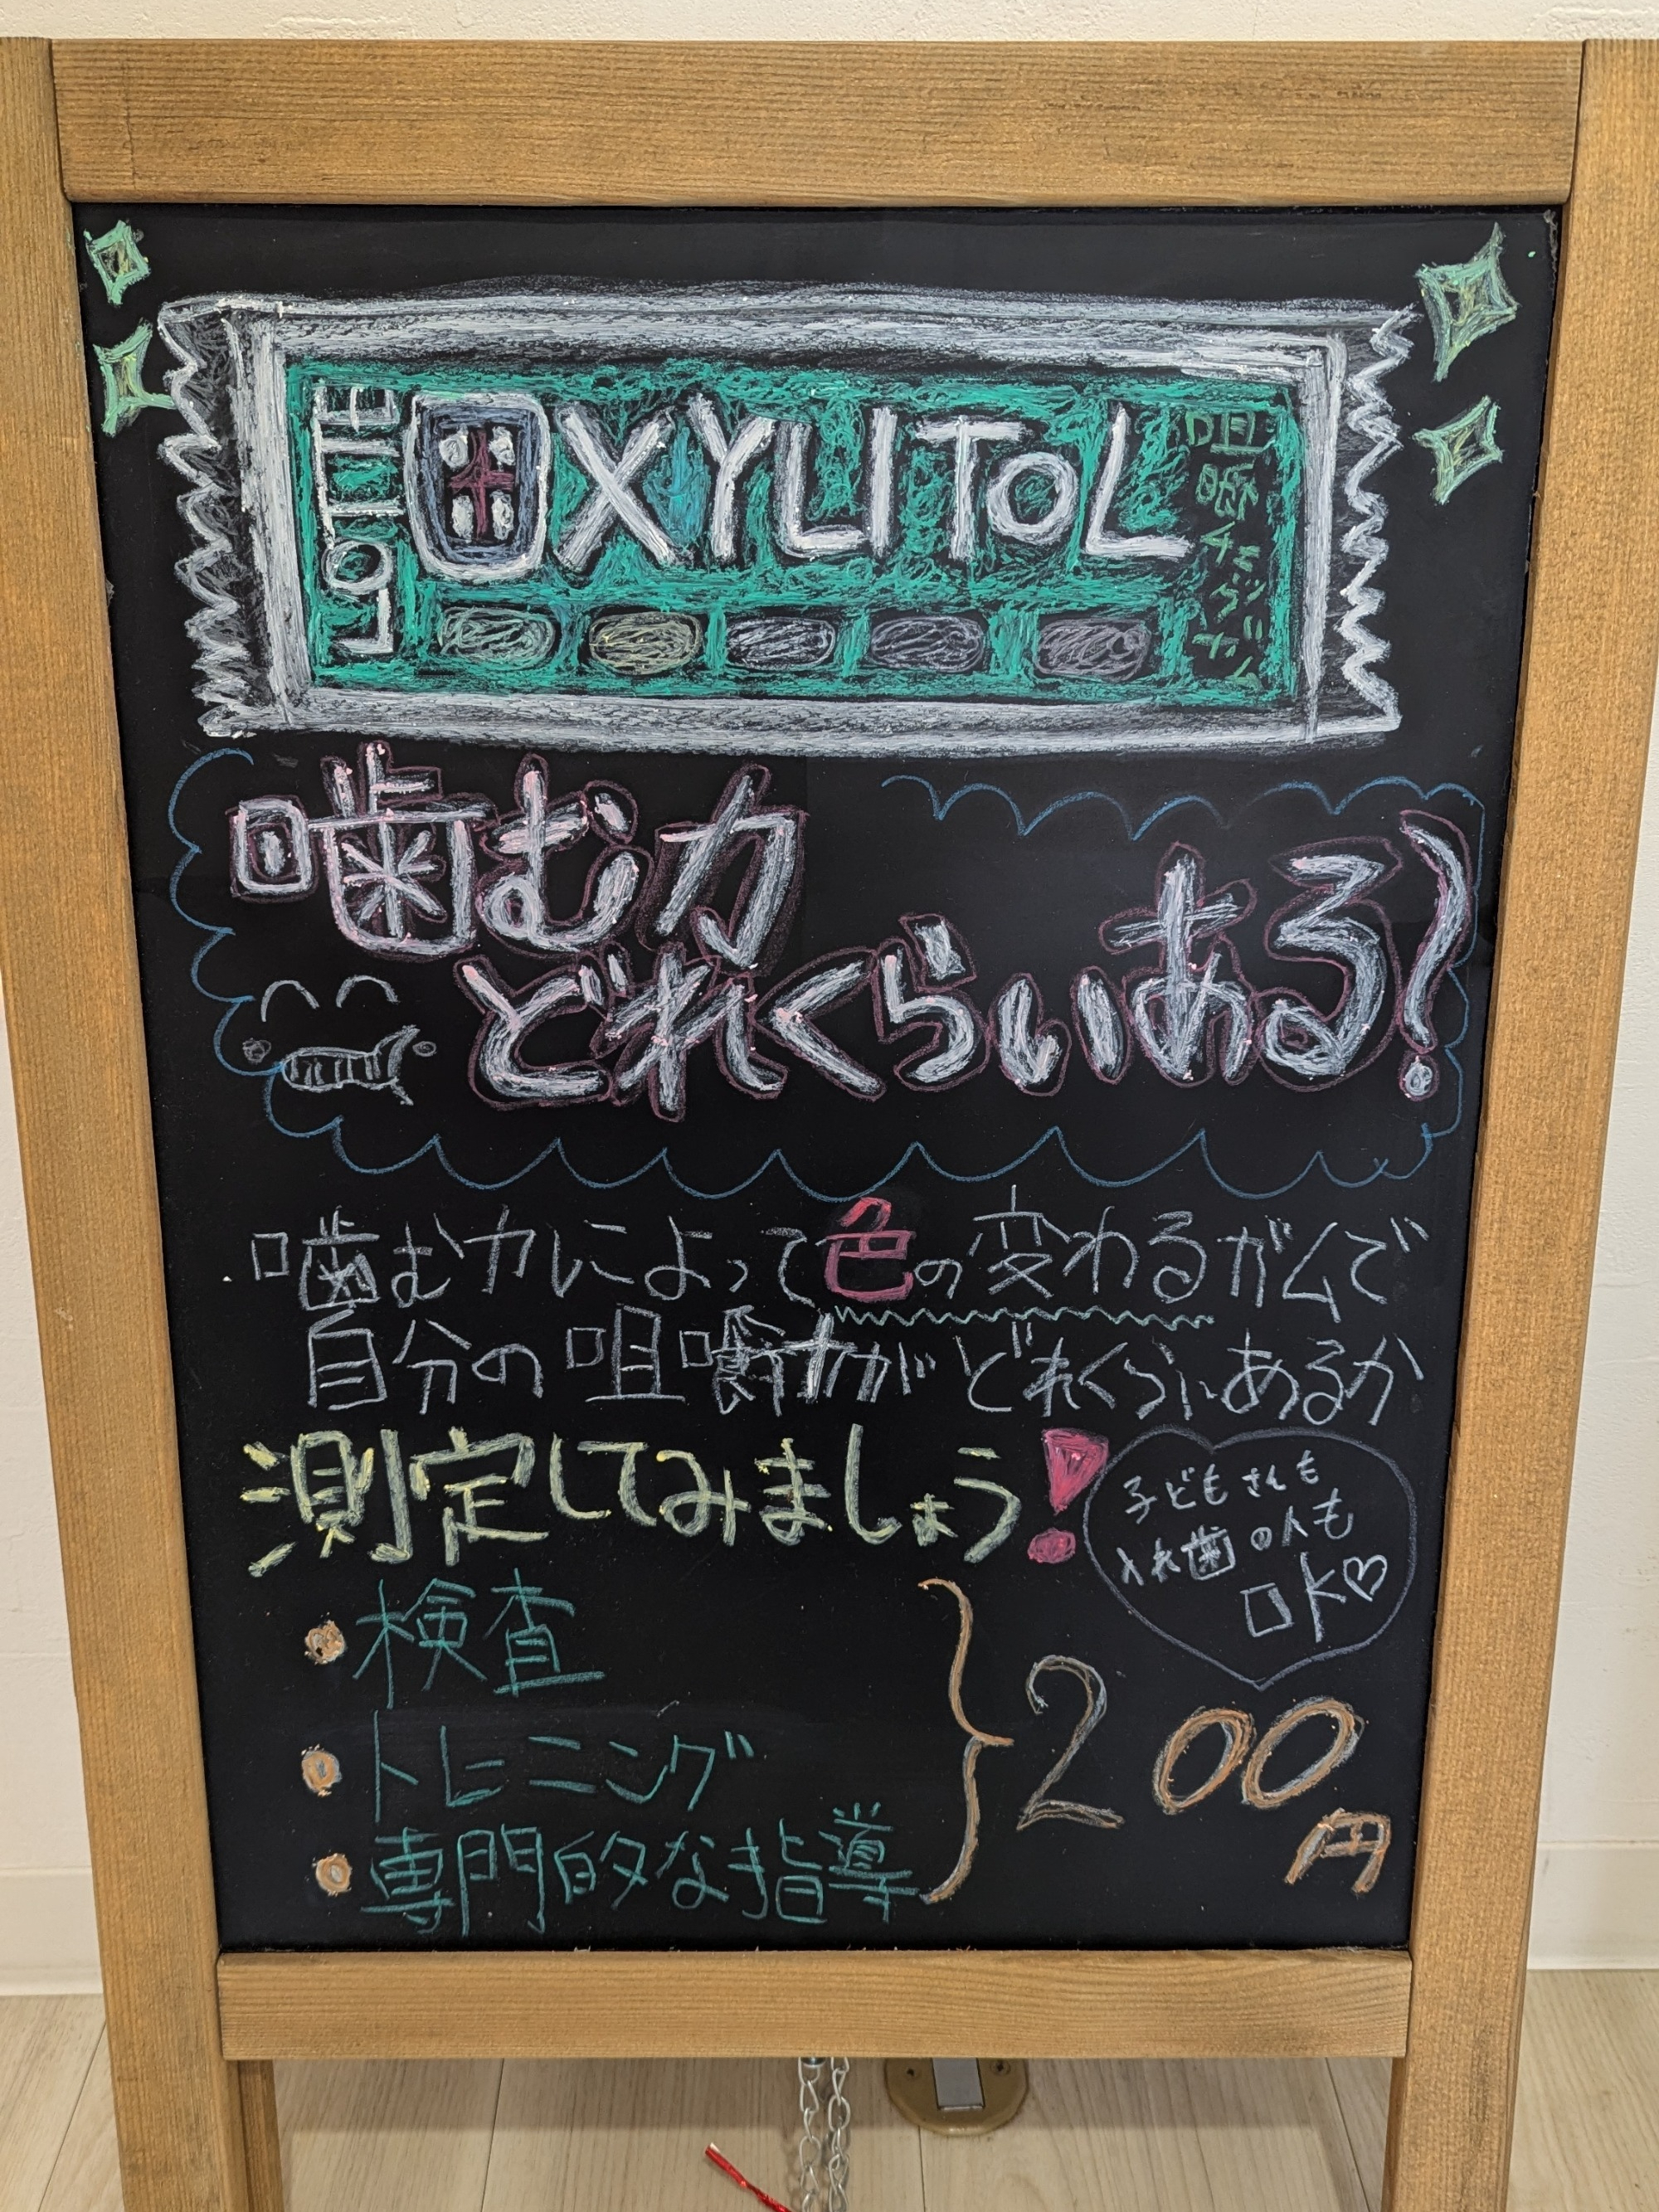 LOTTE
XYLITOL
咀嚼チェックガム
噛む力
どれくらいある?
噛む力によって色の変わるガムで
自分の咀嚼力がどれくらいあるか
測定してみましょう!
子どもさんも
入れ歯の人も
OK♡
・検査
・トレーニング
・専門的な指導
200
円